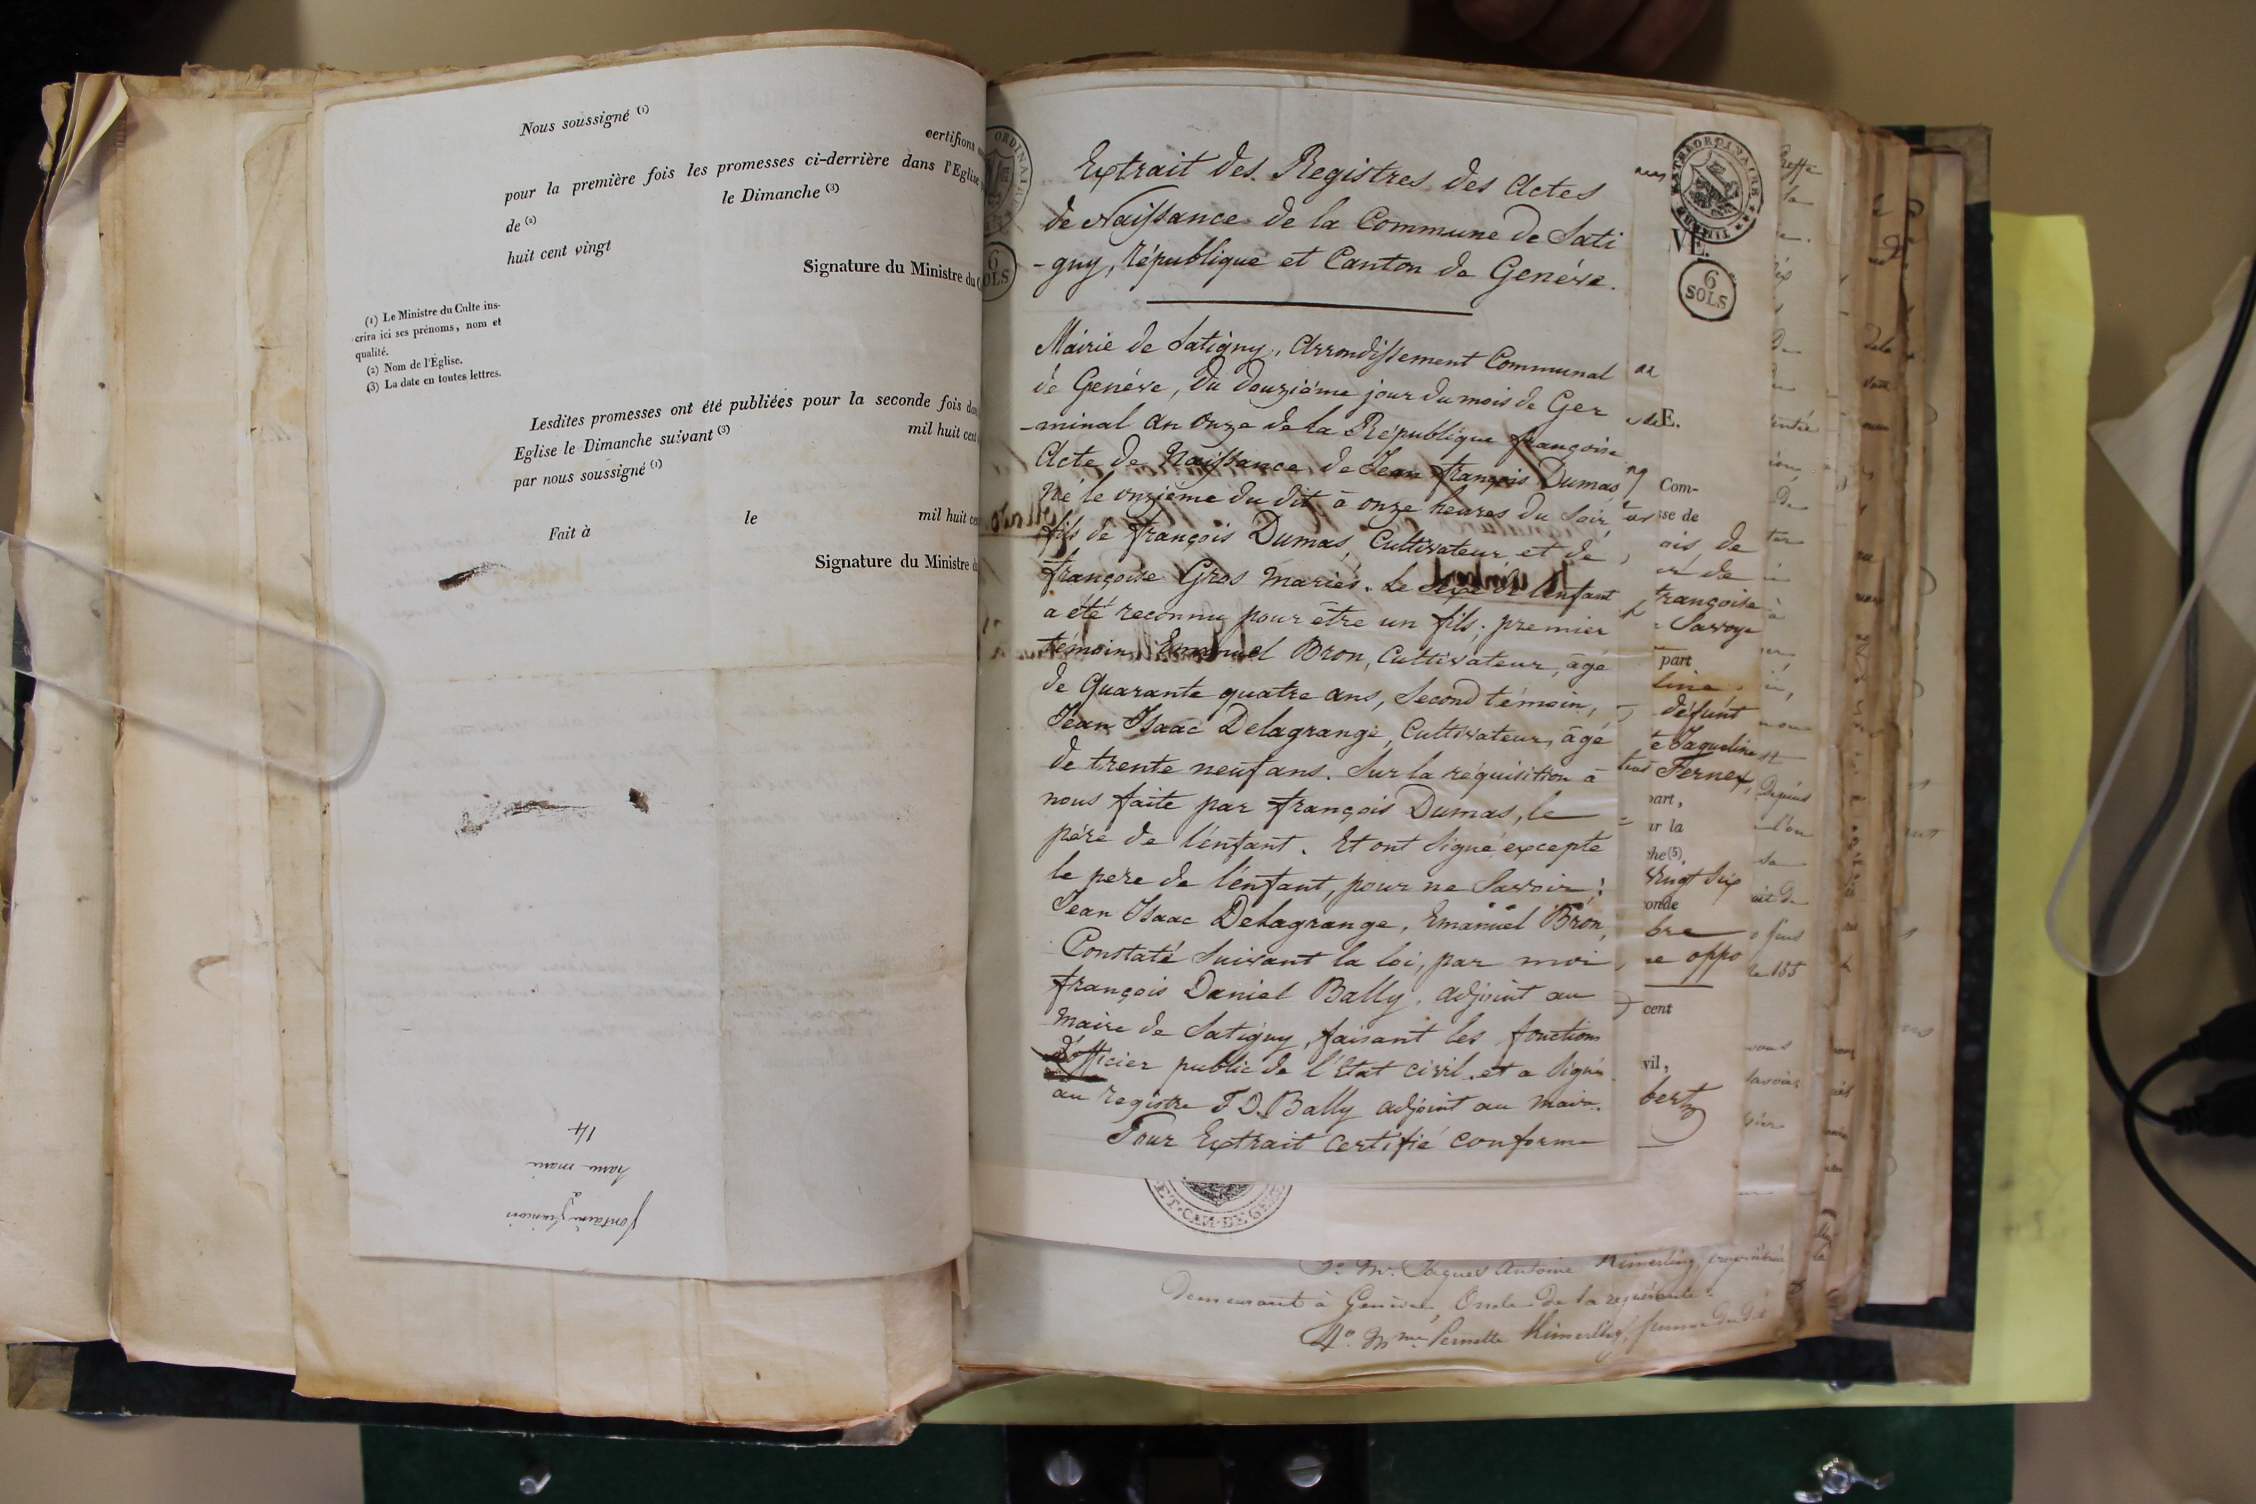 Nous soussigné (1)
certifions
pour la première fois les promesses ci-derrière dans l'Eglise
de (2)
le Dimanche (3)
huit cent vingt
Signature du Ministre du
(1) Le Ministre du Culte ins-
crira ici ses prénoms, nom et
qualité.
(2) Nom de l'Eglise.
(3) La date en toutes lettres.
Lesdites promesses ont été publiées pour la seconde fois
Eglise le Dimanche suivant (3)
mil huit cent
par nous soussigné (1)
Fait à
le
mil huit
Signature du Ministre
14
Extrait des Registres des Actes
de Naissance de la Commune de Sati
-gny, République et Canton de Genéve.
Mairie de Satigny, Arrondissement Communal
de Genéve, du douziéme jour du mois de Ger
-minal an onze de la République françoise
Acte de Naissance de Jean françois Dumas
né le onziéme du dit à onze heures du soir
fils de françois Dumas, Cultivateur et de
françoise Gros mariés. Le sexe de l'enfant
a été reconnu pour être un fils; premier
témoin, Emanuel Bron, Cultivateur, âgé
de Quarante quatre ans, Second témoin,
Jean Isaac Delagrange, Cultivateur, âgé
de trente neuf ans. Sur la réquisition à
nous faite par françois Dumas, le
pére de l'enfant. Et ont signé excepté
le pere de l'enfant, pour ne savoir;
Jean Isaac Delagrange, Emanuel Bron,
Constaté suivant la loi, par moi
françois Daniel Bally, adjoint au
maire de Satigny, faisant les fonctions
d'officier public de l'Etat civil. et a signé
au registre F D. Bally adjoint au maire.
Pour Extrait certifié conforme
6
SOLS
VE.
E.
Com-
ois, de
françoise
Savoye
part
défunt
Jaqueline
Fernex,
part,
ur la
che (5),
vingt six
conde
bre
oppo
cent
vil,
bert
ET. CAN. DE GE
3.° Mr. Jaques Antoine Kimerling, propriétaire
demeurant à Genève, Oncle de la requérante.
4.° Mme. Pernette Kimerling, femme du dit